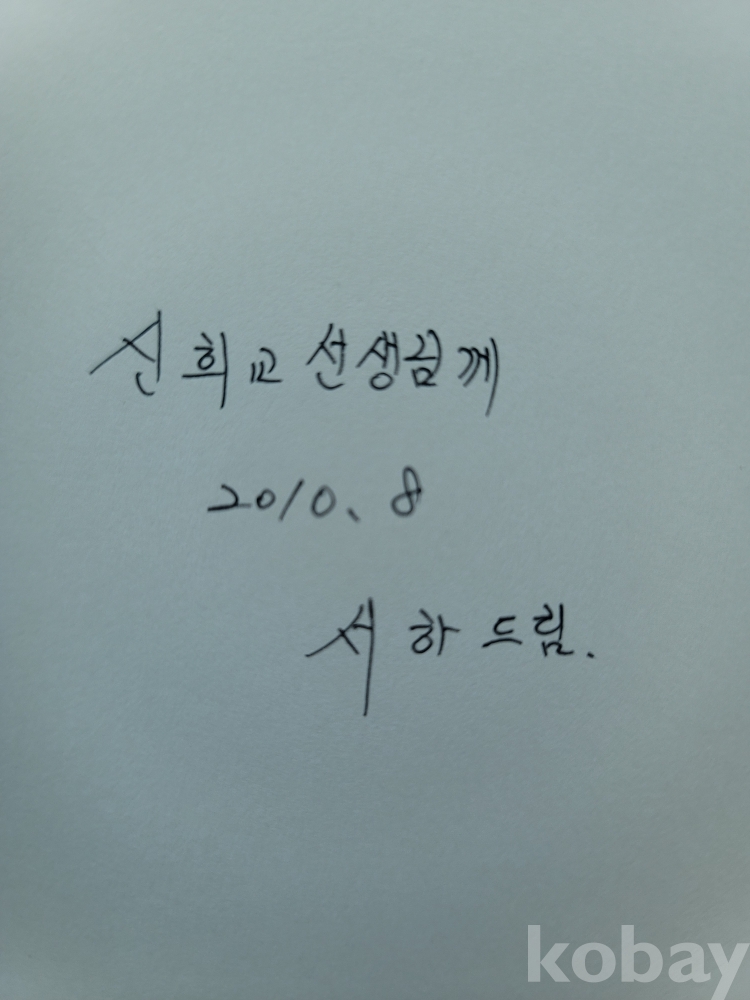 신희교 선생님께
2010. 8
서하 드림.
kobay